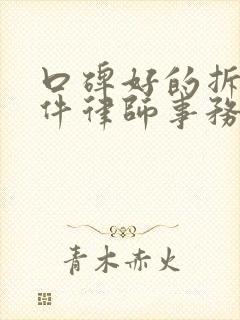 口碑好的拆
件律師事務
青木赤火